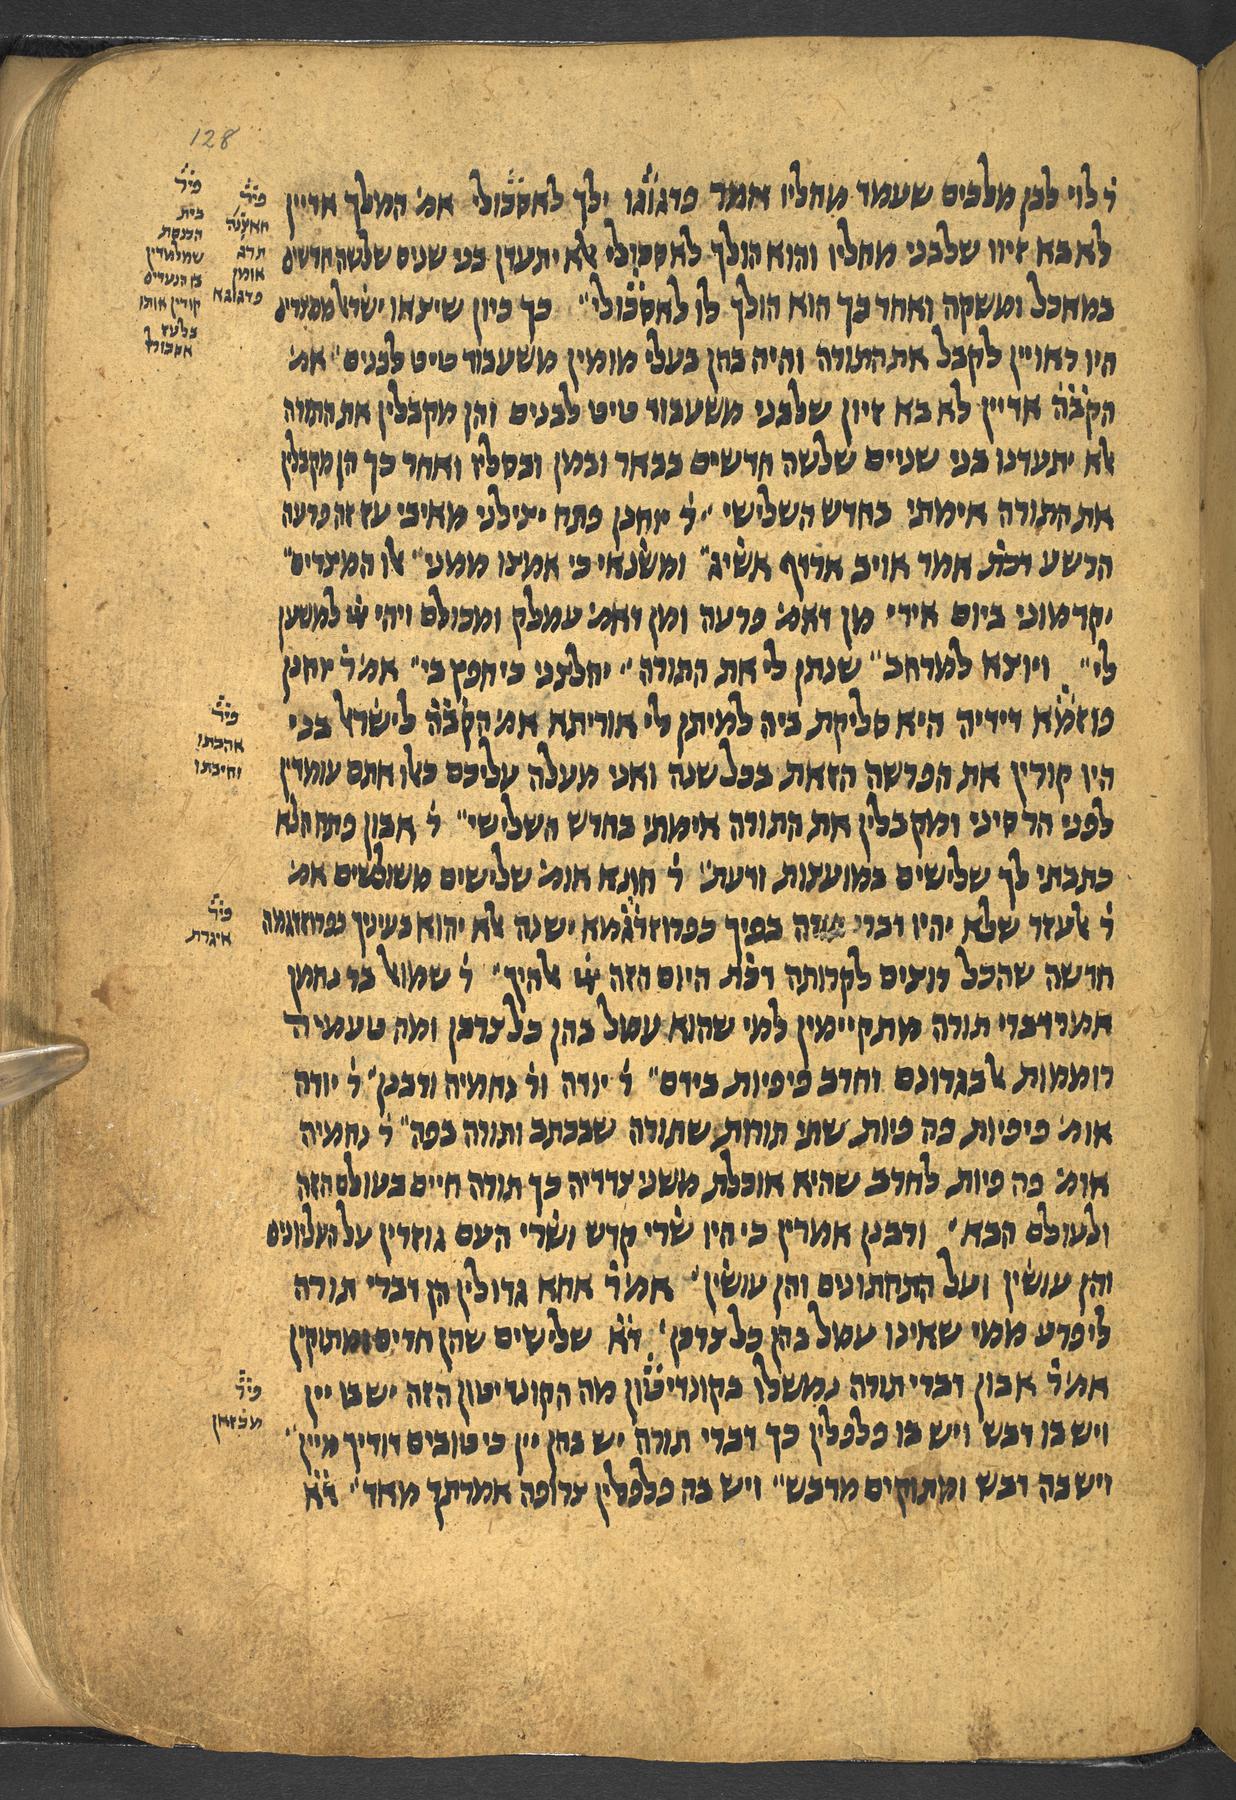 128
ר׳ לוי לבן מלכים שעמד מחליו אמר פדגוגו ילך לאסכולי אמ׳ המלך אדיין
לא בא זיוו שלבני מחליו והוא הולך לאסכולי אלא יתעדן בני שנים שלשה חדשים
במאכל ומשקה ואחר כך הוא הולך לו לאסכולי״ כך כיון שיצאו ישראל ממצרים
היו ראויין לקבל את התורה והיה בהן בעלי מומין משעבוד טיט לבנים״ אמ׳
הקב״ה אדיין לא בא זיון שלבני משעבוד טיט לבנים והן מקבלין את התורה
אלא יתעדנו בני שניים שלשה חדשים בבאר ובמן ובסליו ואחר כך הן מקבלין
את התורה אימתי בחדש השלישי״ ר׳ יוחנן פתח יצילני מאיבי עז זה פרעה
הרשע דכת׳ אמר אויב ארדוף אשיג״ ומשנאי כי אמצו ממני״ אלו המצרים״
יקדמוני ביום אידי מן דאמ׳ פרעה ומן דאמ׳ עמלק ומכולם ויהי למשען
לי״ ויוצא למרחב״ שנתן לי את התורה״ יחלצני כי חפץ בי״ אמ׳ ר׳ יוחנן
פוזמא דידיה היא סליקת ביה למיתן לי אוריתא אמ׳ הקב״ה לישראל בני
היו קורין את הפרשה הזאת בכל שנה ואני מעלה עליכם כאלו אתם עומדין
לפני הר סיני ומקבלין את התורה אימתי בחדש השלישי״ ר׳ אבון פתח הלא
כתבתי לך שלישים במועצות ודעת״ ר׳ חמא אומ׳ שלישים משולשים אמ׳
ר׳ אלעזר שלא יהיו דברי תורה בפיך כפרוזדגמא ישנה אלא יהוא בעיניך כפרוזדגמה
חדשה שהכל רוצים לקרותה דכת׳ היום הזה אלהיך״ ר׳ שמואל בר נחמן
אמר דברי תורה מתקיימין למי שהוא עמל בהן כל צרכן ומה טעמיה
רוממות אל בגרונם וחרב פיפיות בידם״ ר׳ יודה ור׳ נחמיה ורבנן׳ ר׳ יודה
אומ׳ פיפיות פה פיות שתי תורות שתורה שבכתב ותורה בפה״ ר׳ נחמיה
אומ׳ פה פיות לחרב שהיא אוכלת משני צדדיה כך תורה חיים בעולם הזה
ולעולם הבא׳ ורבנן אמרין כי היו שרי קדש ושרי העם גוזרין על העליונים
והן עושין ועל התחתונים והן עושין׳ אמ׳ ר׳ אחא גדולין הן דברי תורה
ליפרע ממי שאינו עמל בהן כל צרכן׳ ד״א שלישים שהן חדים ומתוקין
אמ׳ ר׳ אבון דברי תורה נמשלו בקונדיטון מה הקונדיטון הזה יש בו יין
ויש בו דבש ויש בו פלפלין כך דברי תורה יש בהן יין כי טובים דודיך מיין״
ויש בה דבש ומתוקים מדבש״ ויש בה פלפלין צרופה אמרתך מאד״ ד״א
פיר׳
תרג׳
אומן
פדגוגא
פיר׳
בית
הכנסת
שמלמדין
בו הנערים
קורין אותו
בלעז
אסכולי
פיר׳
אהבתו
וחיבתו
פיר׳
איגרת
פיר׳